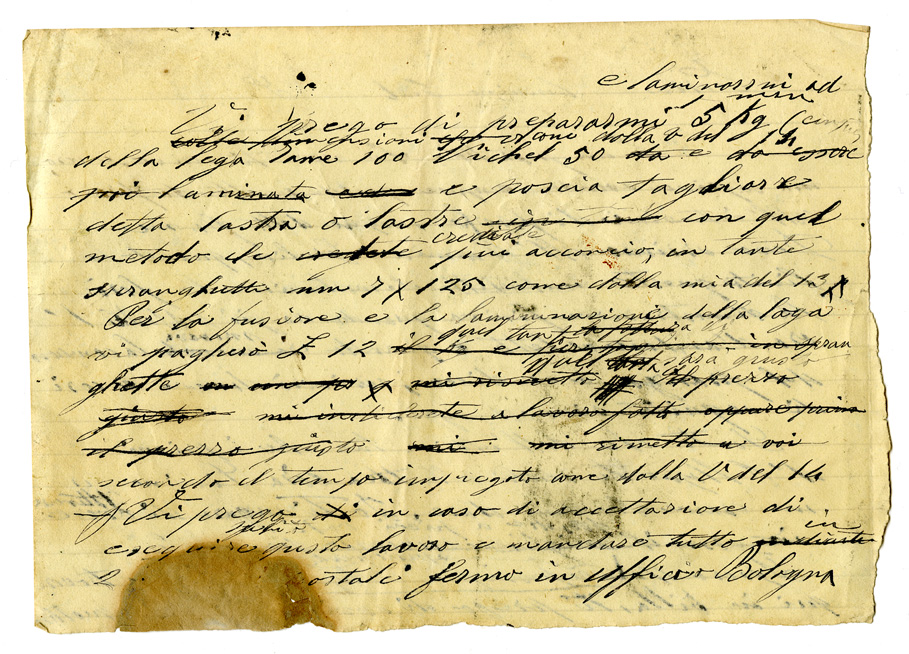 e laminarmi ad
Vi prego di prepararmi 5 Kg (cinque
colle dimensioni come dalla V. del 14
della lega rame 100 Nichel 50 da e da essere
poi laminata e poscia tagliare
detta lastra o lastre con quel
crediate
metodo che credete più acconcio, in tante
spranghette mm 7 x 125 come dalla mia del 1º
Per la fusione e la laminazione della lega
quel tanto
vi pagherò £ 12 il Kg e in spran
quale sara giusto
ghette mi rimetto il prezzo
giusto mi indicherete a lavoro fatto oppure prima
il prezzo giusto mi mi rimetto a voi
secondo il tempo impiegato come dalla V. del 14
Vi prego in caso di accettazione di
in
eseguire questo lavoro e mandare tutto mediante
postale fermo in ufficio Bologna